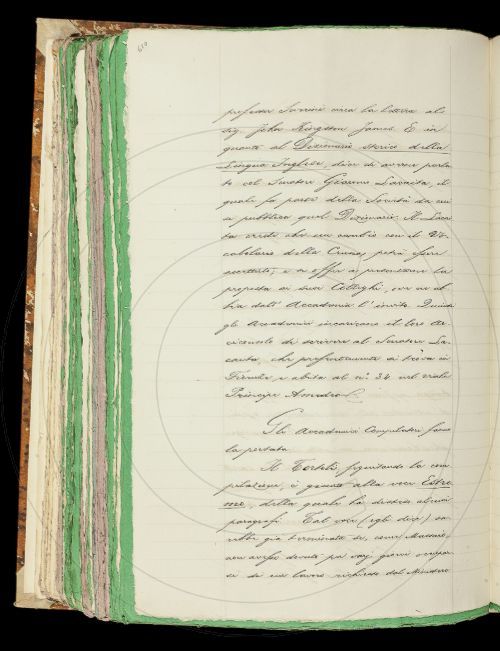 professor Severini circa la lettera al
sig. John Kingston James. E in
quanto al Dizionario storico della
Lingua Inglese, dice di averne parla
to col Senatore Giacomo Lacaita, il
quale fa parte della Società da cui
si pubblica quel Dizionario. Il Lacai
ta crede che un cambio con il Vo-
cabolario della Crusca, potrà essere
accettato; e si offrì a presentare la
proposta ai suoi Colleghi, ove ne ab
bia dall' Accademia l' invito. Quindi
gli Accademici incaricano il loro Ar-
ciconsolo di scrivere al Senatore La-
caita, che presentemente si trova in
Firenze, e abita al n.° 34 nel viale
Principe Amedeo.
Gli Accademici Compilatori fanno
la portata.
Il Tortoli, seguitando la com
pilazione, è giunto alla voce Estre
mo, della quale ha disteso alcuni
paragrafi. Tal voce (egli dice) sa
rebbe già terminata se, come Massaio,
non avesse dovuto per vari giorni occupar
si di un lavoro richiesto dal Ministero